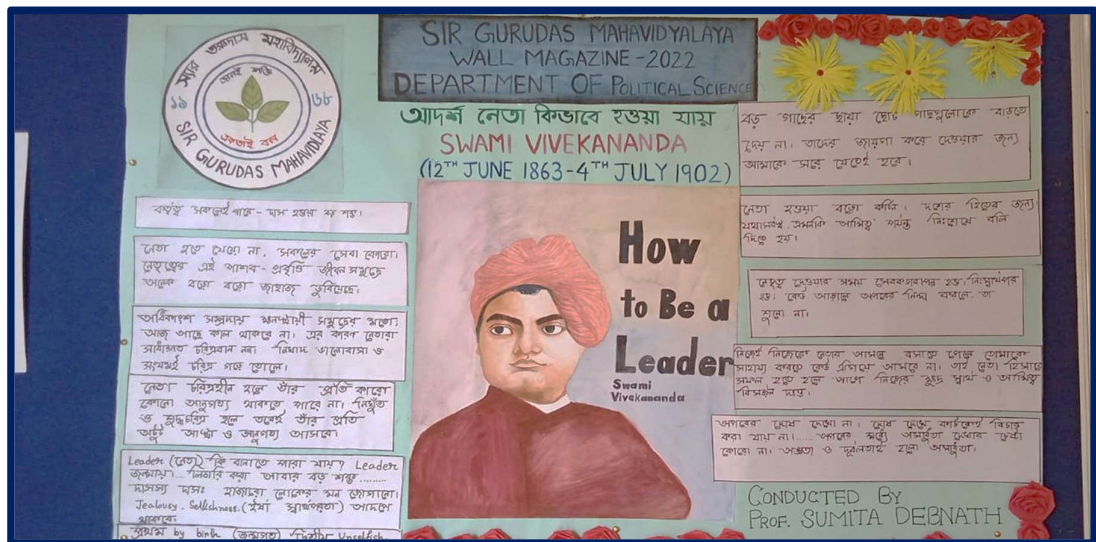 স্যর গুরুদাস মহাবিদ্যালয়
১৯ ৬৮
একতাই বল
SIR GURUDAS MAHAVIDYALAYA
SIR GURUDAS MAHAVIDYALAYA
WALL MAGAZINE-2022
DEPARTMENT OF POLITICAL SCIENCE
আদর্শ নেতা কিভাবে হওয়া যায়
SWAMI VIVEKANANDA
(12TH JUNE 1863-4TH JULY 1902)
How
to Be a
Leader
Swami
Vivekananda
নেতা হতে যেয়ো না, সকলের সেবা কোরো।
নেতৃত্বের এই পাশব-প্রবৃত্তি জীবন সমুদ্রে
অনেক বড়ো বড়ো জাহাজ ডুবিয়েছে।
আজ আছে কাল থাকবে না। এর কারণ নেতারা
নেতা চরিত্রহীন হলে তাঁর প্রতি কারো
কোনো আনুগত্য থাকতে পারে না। নিখুঁত
ও শুদ্ধচরিত্র হলে তবেই তাঁর প্রতি
আস্থা ও আনুগত্য আসবে।
Leader (নেতা) কি বানাতে পারা যায়? Leader
জন্মায়।... লিডারি করা আবার বড় শক্ত.........
দাসস্য দাসঃ হাজারো লোকের মন জোগানো।
Jealousy, Selfishness, (ঈর্ষা স্বার্থপরতা) আদপে
থাকবে
প্রথম by birth (জন্মগত) দ্বিতীয় Unselfish
বড় গাছের দ্বারা ছোট গাছগুলোকে বাড়তে
দেয় না। তাদের জায়গা করে দেওয়ার জন্য
আমাকে সরে যেতেই হবে।
নেতা হওয়া বড়ো কঠিন। দশের হিতের জন্য
যথাসর্বস্ব, এমনকি আমিত্ব পর্যন্ত নিঃশেষে বলি
দিতে হয়।
শুনো না।
নিজেই নিজেকে নেতার আসনে বসাতে গেলে তোমাকে
সাহায্য করতে কেউ এগিয়ে আসবে না। তাই নেতা হিসাবে
সফল হতে হলে আগে নিজের ক্ষুদ্র স্বার্থ ও আমিত্ব
বিসর্জন দাও।
অপরের দোষ দেখো না। দোষ দেখে কাউকেই বিচার
করা যায় না।
কোরো না। অজ্ঞতা ও দুর্বলতাই হলো অসাধুতা।
CONDUCTED BY
PROF. SUMITA DEBNATH